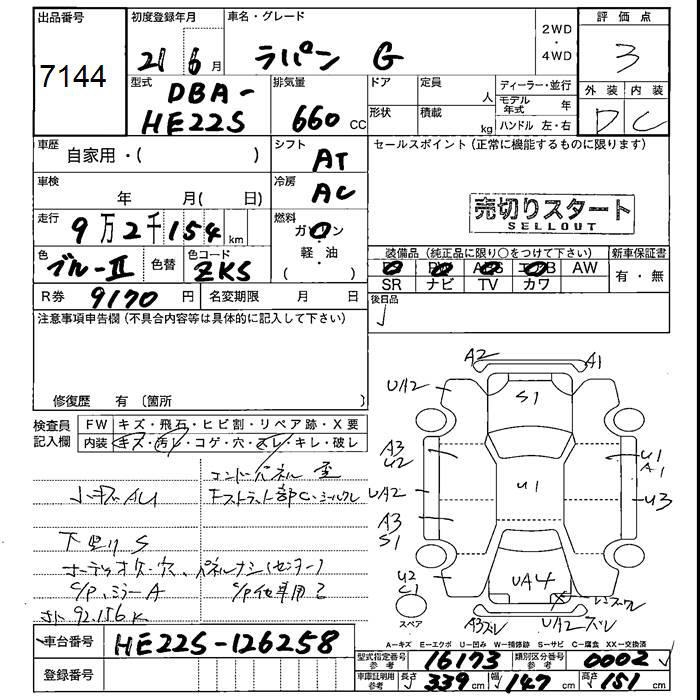 出品番号
7144
初度登録年月
21 6 月
車名・グレード
ラパン G
2WD
・
4WD
評価点
3
外装 内装
D C
型式
DBA-
HE22S
排気量
660 CC
ドア
定員
人
形状
積載
kg
ディーラー・並行
モデル年式 年
ハンドル 左・右
車歴
自家用・( )
シフト
AT
車検
年 月( 日)
冷房
AC
セールスポイント(正常に機能するものに限ります)
売切りスタート
SELLOUT
走行
9万2千154 km
燃料
ガソリン
・
軽・油
色
ブルーII
色替
色コード
ZKS
装備品(純正品に限り○をつけて下さい)
AW
SR ナビ TV カワ
新車保証書
有・無
R券 9170 円
名変期限 月 日
後日品
注意事項申告欄(不具合内容等は具体的に記入して下さい)
修復歴 有(箇所
検査員
記入欄
FW キズ・飛石・ヒビ割・リペア跡・X要
内装 キズ・汚レ・コゲ・穴・スレ・キレ・破レ
小キズAU
下回りS
C/P、ミラーA
92.156K
A2
A1
UA2
S1
A3
U2
U1
A1
UA2
U1
U3
A3
S1
U2
C1
UA4
スペア
A3ズレ
UA2ズレ
A=キズ E=エクボ U=凹み W=補修跡 S=サビ C=腐食 XX=交換済
車台番号 HE22S-126258
登録番号
型式指定番号参考 16173
類別区分番号参考 0002
車庫証明用参考 長さ 339 cm 幅 147 cm 高さ 151 cm